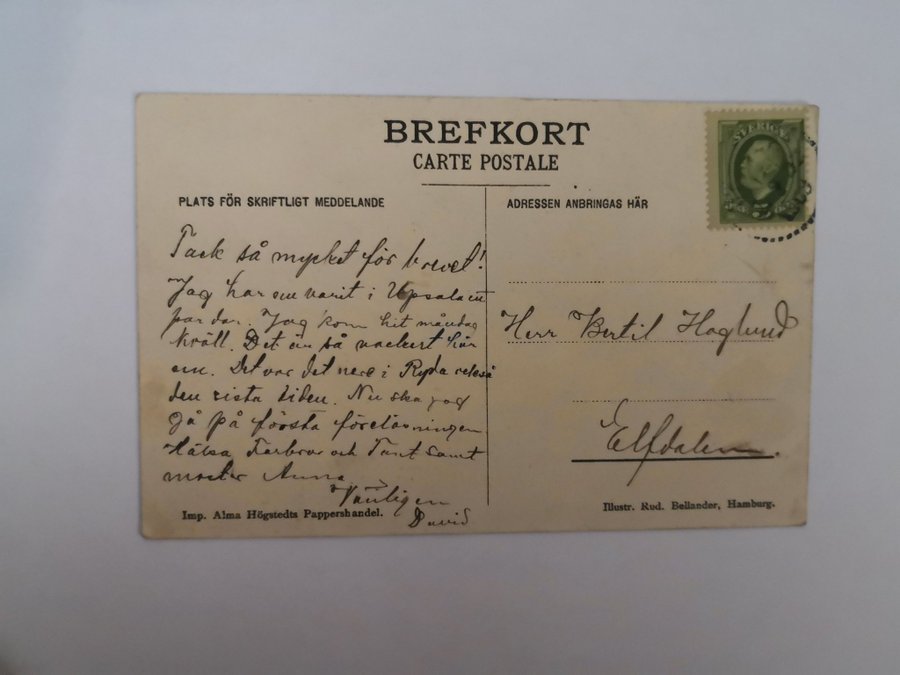 BREFKORT
CARTE POSTALE
SVERIGE
5
PLATS FÖR SKRIFTLIGT MEDDELANDE
Tack så mycket för brevet!
Jag har nu varit i Upsala ett
par dar. Jag kom hit måndag
kväll. Det är så vackert här
nu. Det var det nere i Ryda också
den sista tiden. Nu ska jag
gå på första föreläsningen
Hälsa Farbror och Tant samt
moster Anna
Vänligen
David
Imp. Alma Högstedts Pappershandel.
ADRESSEN ANBRINGAS HÄR
Herr Bertil Hoglund
Elfdalen.
Illustr. Rud. Bellander, Hamburg.